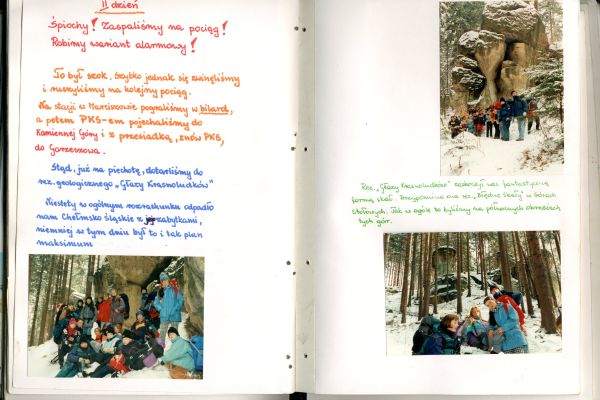 II dzień
Śpiochy! Zaspaliśmy na pociąg!
Robimy wariant alarmowy!
To był szok, szybko jednak się zwinęliśmy
i ruszyliśmy na kolejny pociąg.
Na stacji w Marciszowie pograliśmy w bilard,
a potem PKS-em pojechaliśmy do
Kamiennej Góry i z przesiadką, znów PKS,
do Gorzeszowa.
Stąd, już na piechotę, dotarliśmy do
rez. geologicznego „Głazy Krasnoludków"
Niestety w ogólnym rozrachunku odpadło
nam Chełmsko Śląskie z zabytkami,
niemniej w tym dniu był to i tak plan
maksimum
Rez. „Głazy Krasnoludków" zaskoczył nas fantastyczną
formą skał. Przypomina ona rez. „Błędne Skały" w Górach
Stołowych. Jak w ogóle to byliśmy na północnych obrzeżach
tych gór.